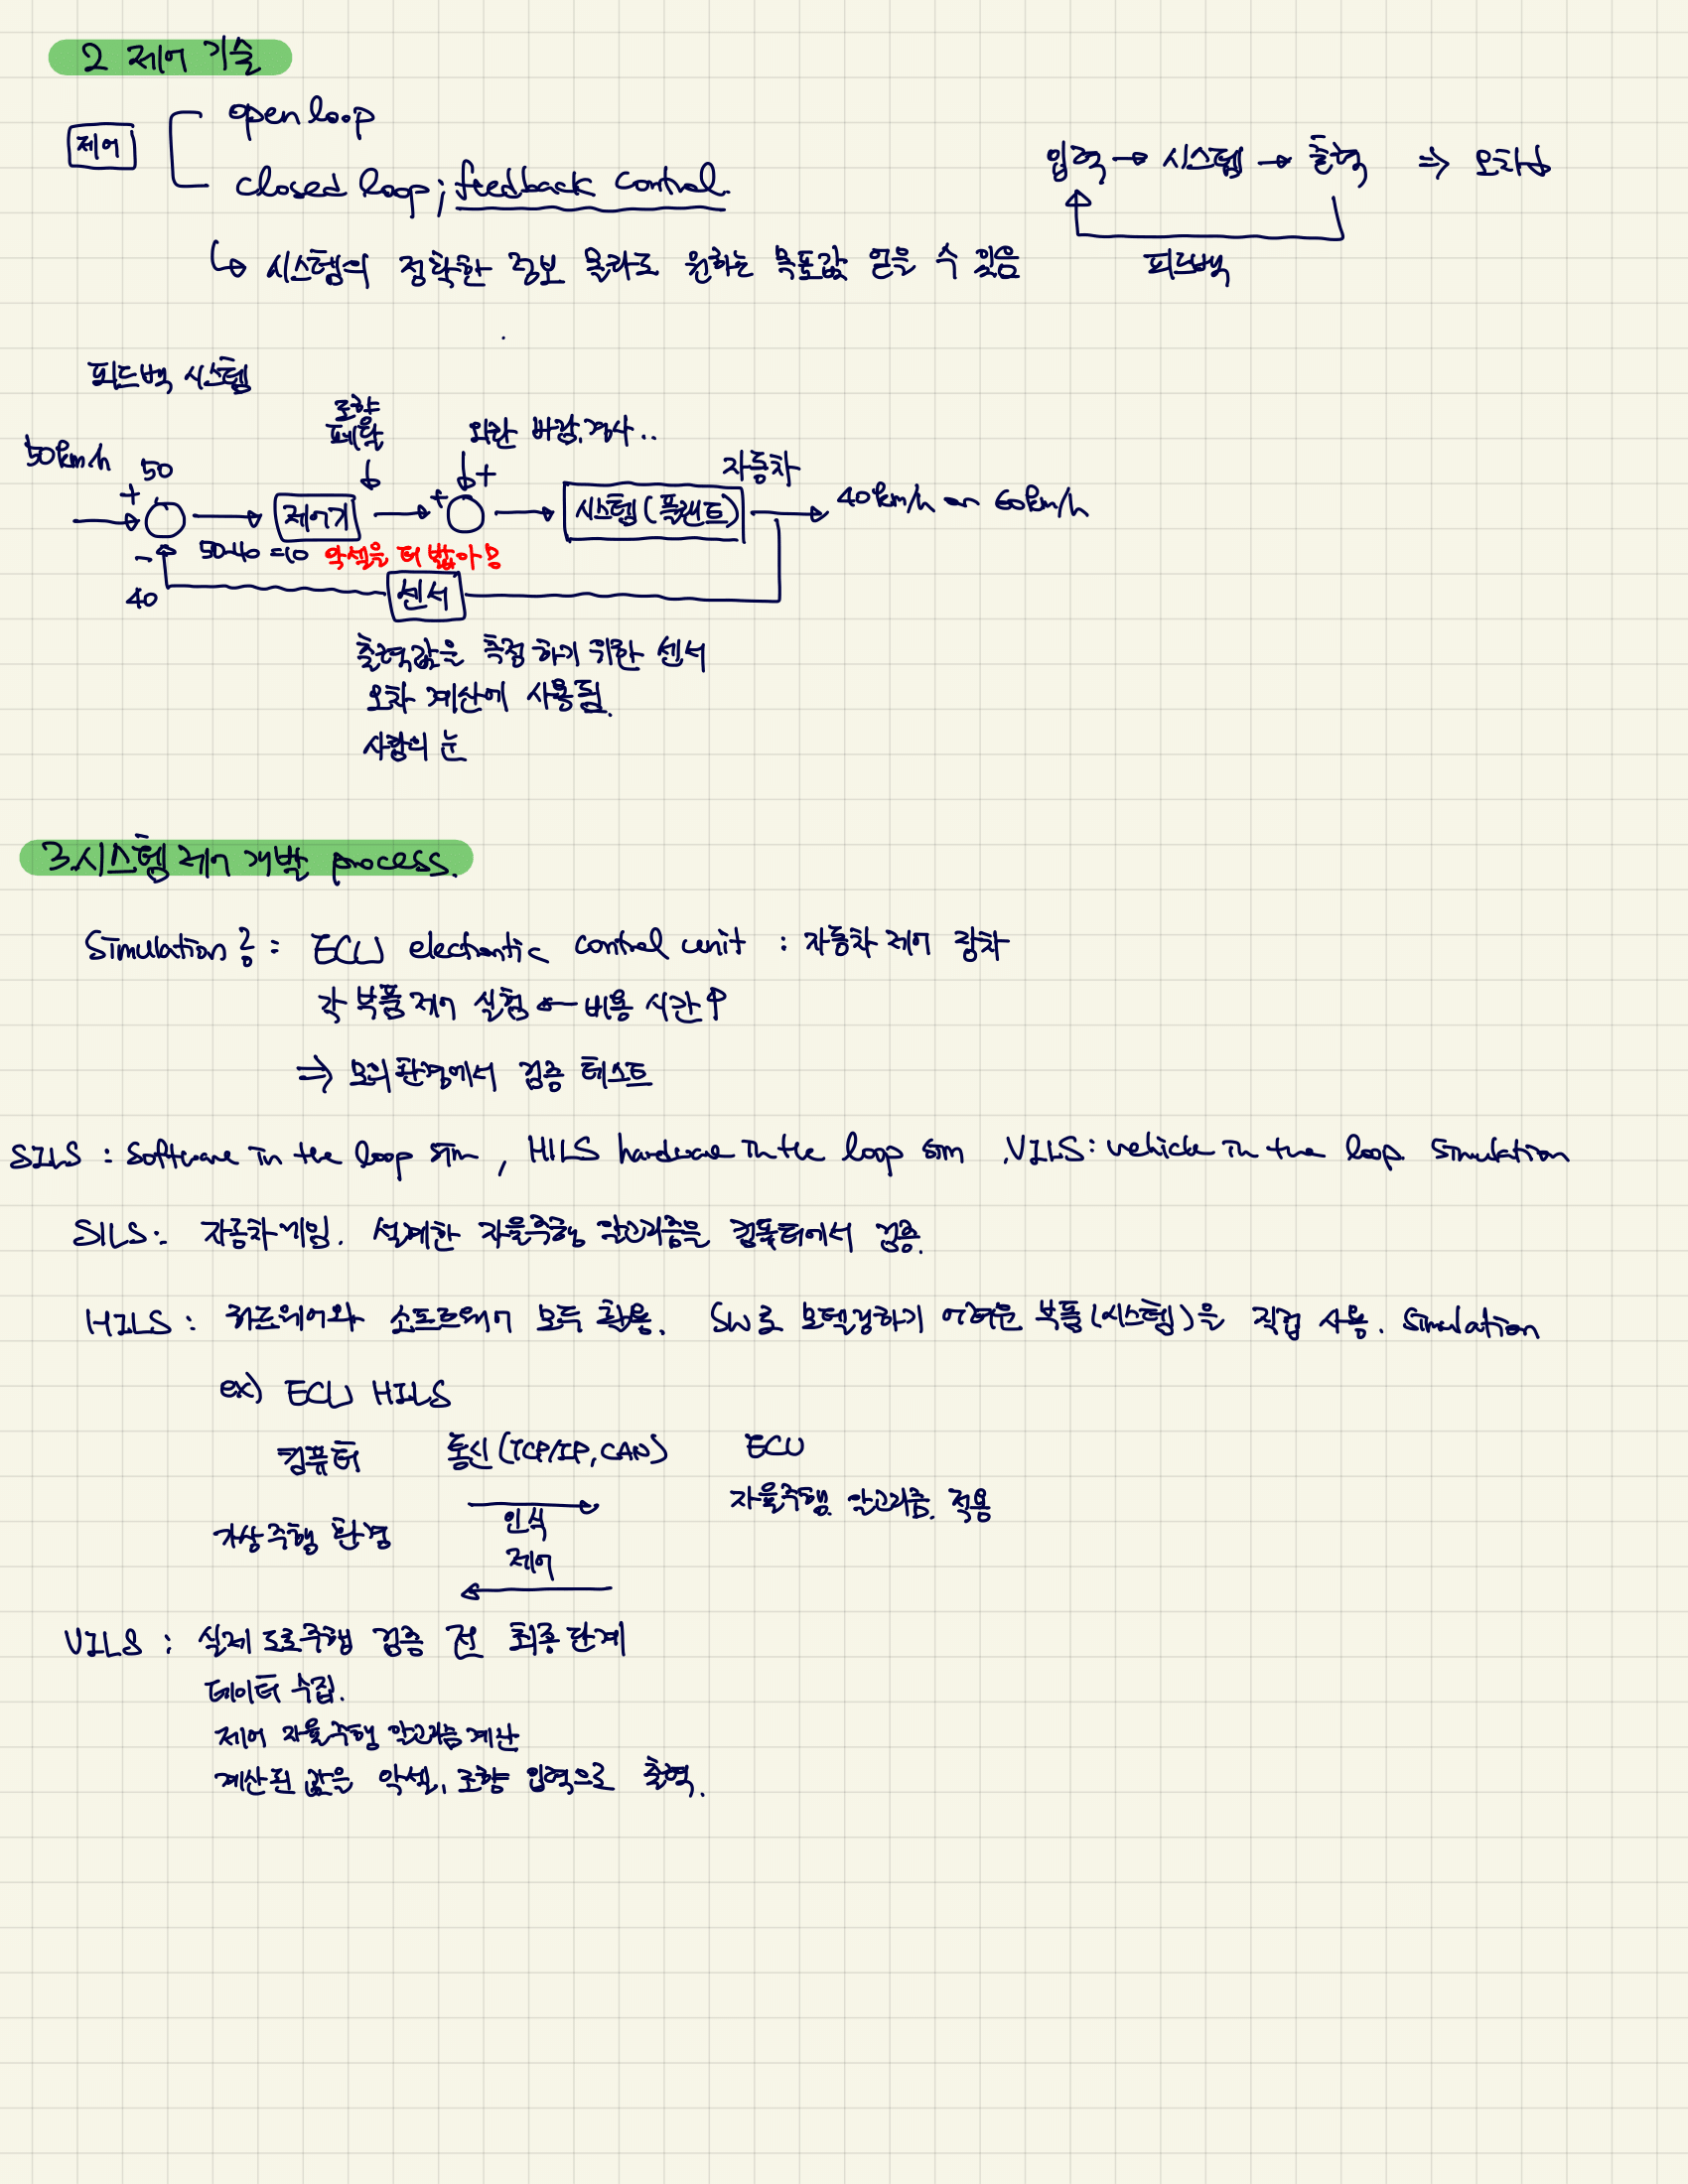 2 제어 기술
제어
open loop
closed loop; feedback control.
입력 → 시스템 → 출력 ⇒ 오차↓
피드백
↳ 시스템의 정확한 정보 몰라도 원하는 목표값 얻을 수 있음
피드백 시스템
50km/h
50
+
-
40
50-40=10
제어기
조향
페달
악셀을 더 밟아요
외란 바람, 경사..
+
+
시스템(플랜트)
자동차
40km/h or 60km/h
센서
출력값을 측정하기 위한 센서
오차 계산에 사용됨.
사람의 눈
3.시스템 제어 개발 process.
Simulation? : ECU electrontic control unit : 자동차 제어 장차
각 부품 제어 실험 ← 비용 시간↑
⇒ 모의환경에서 검증 테스트
SILS : Software in the loop sim , HILS hardware in the loop sim , VILS: vehicle in the loop. Simulation
SILS: 자동차게임. 설계한 자율주행 알고리즘을 컴퓨터에서 검증.
HILS : 하드웨어와 소프트웨어 모두 활용. SW로 모델링하기 어려운 부품(시스템)을 직접 사용. Simulation
ex) ECU HILS
컴퓨터 통신(TCP/IP, CAN) ECU
자율주행 알고리즘 적용
가상주행 환경
인식
제어
VILS : 실제 도로주행 검증 전 최종단계
데이터 수집.
제어 자율주행 알고리즘 계산
계산된 값을 악셀, 조향 입력으로 출력.